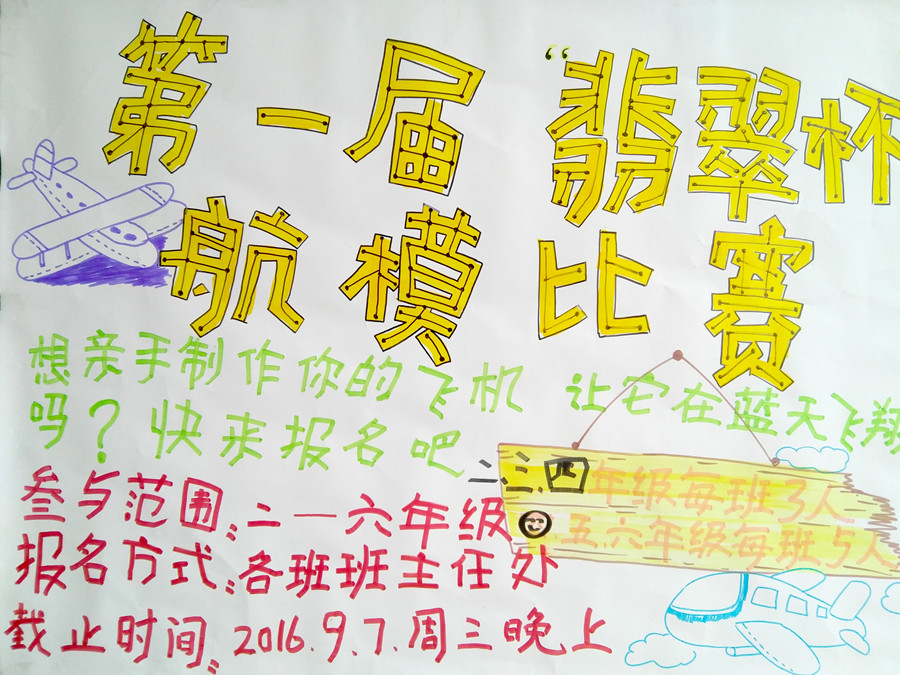 第一届“翡翠杯
航模比赛
想亲手制作你的飞机 让它在蓝天飞翔
吗？快来报名吧
二.三.四年级每班3人
五.六年级每班5人
参与范围：二一六年级
报名方式：各班班主任处
截止时间：2016.9.7.周三晚上